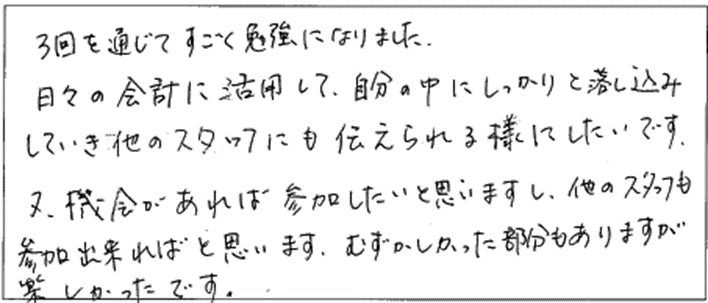 3回を通じてすごく勉強になりました.
日々の会計に活用して、自分の中にしっかりと落し込み
していき他のスタッフにも伝えられる様にしたいです.
又、機会があれば参加したいと思いますし、他のスタッフも
参加出来ればと思います. むずかしかった部分もありますが
楽しかったです.